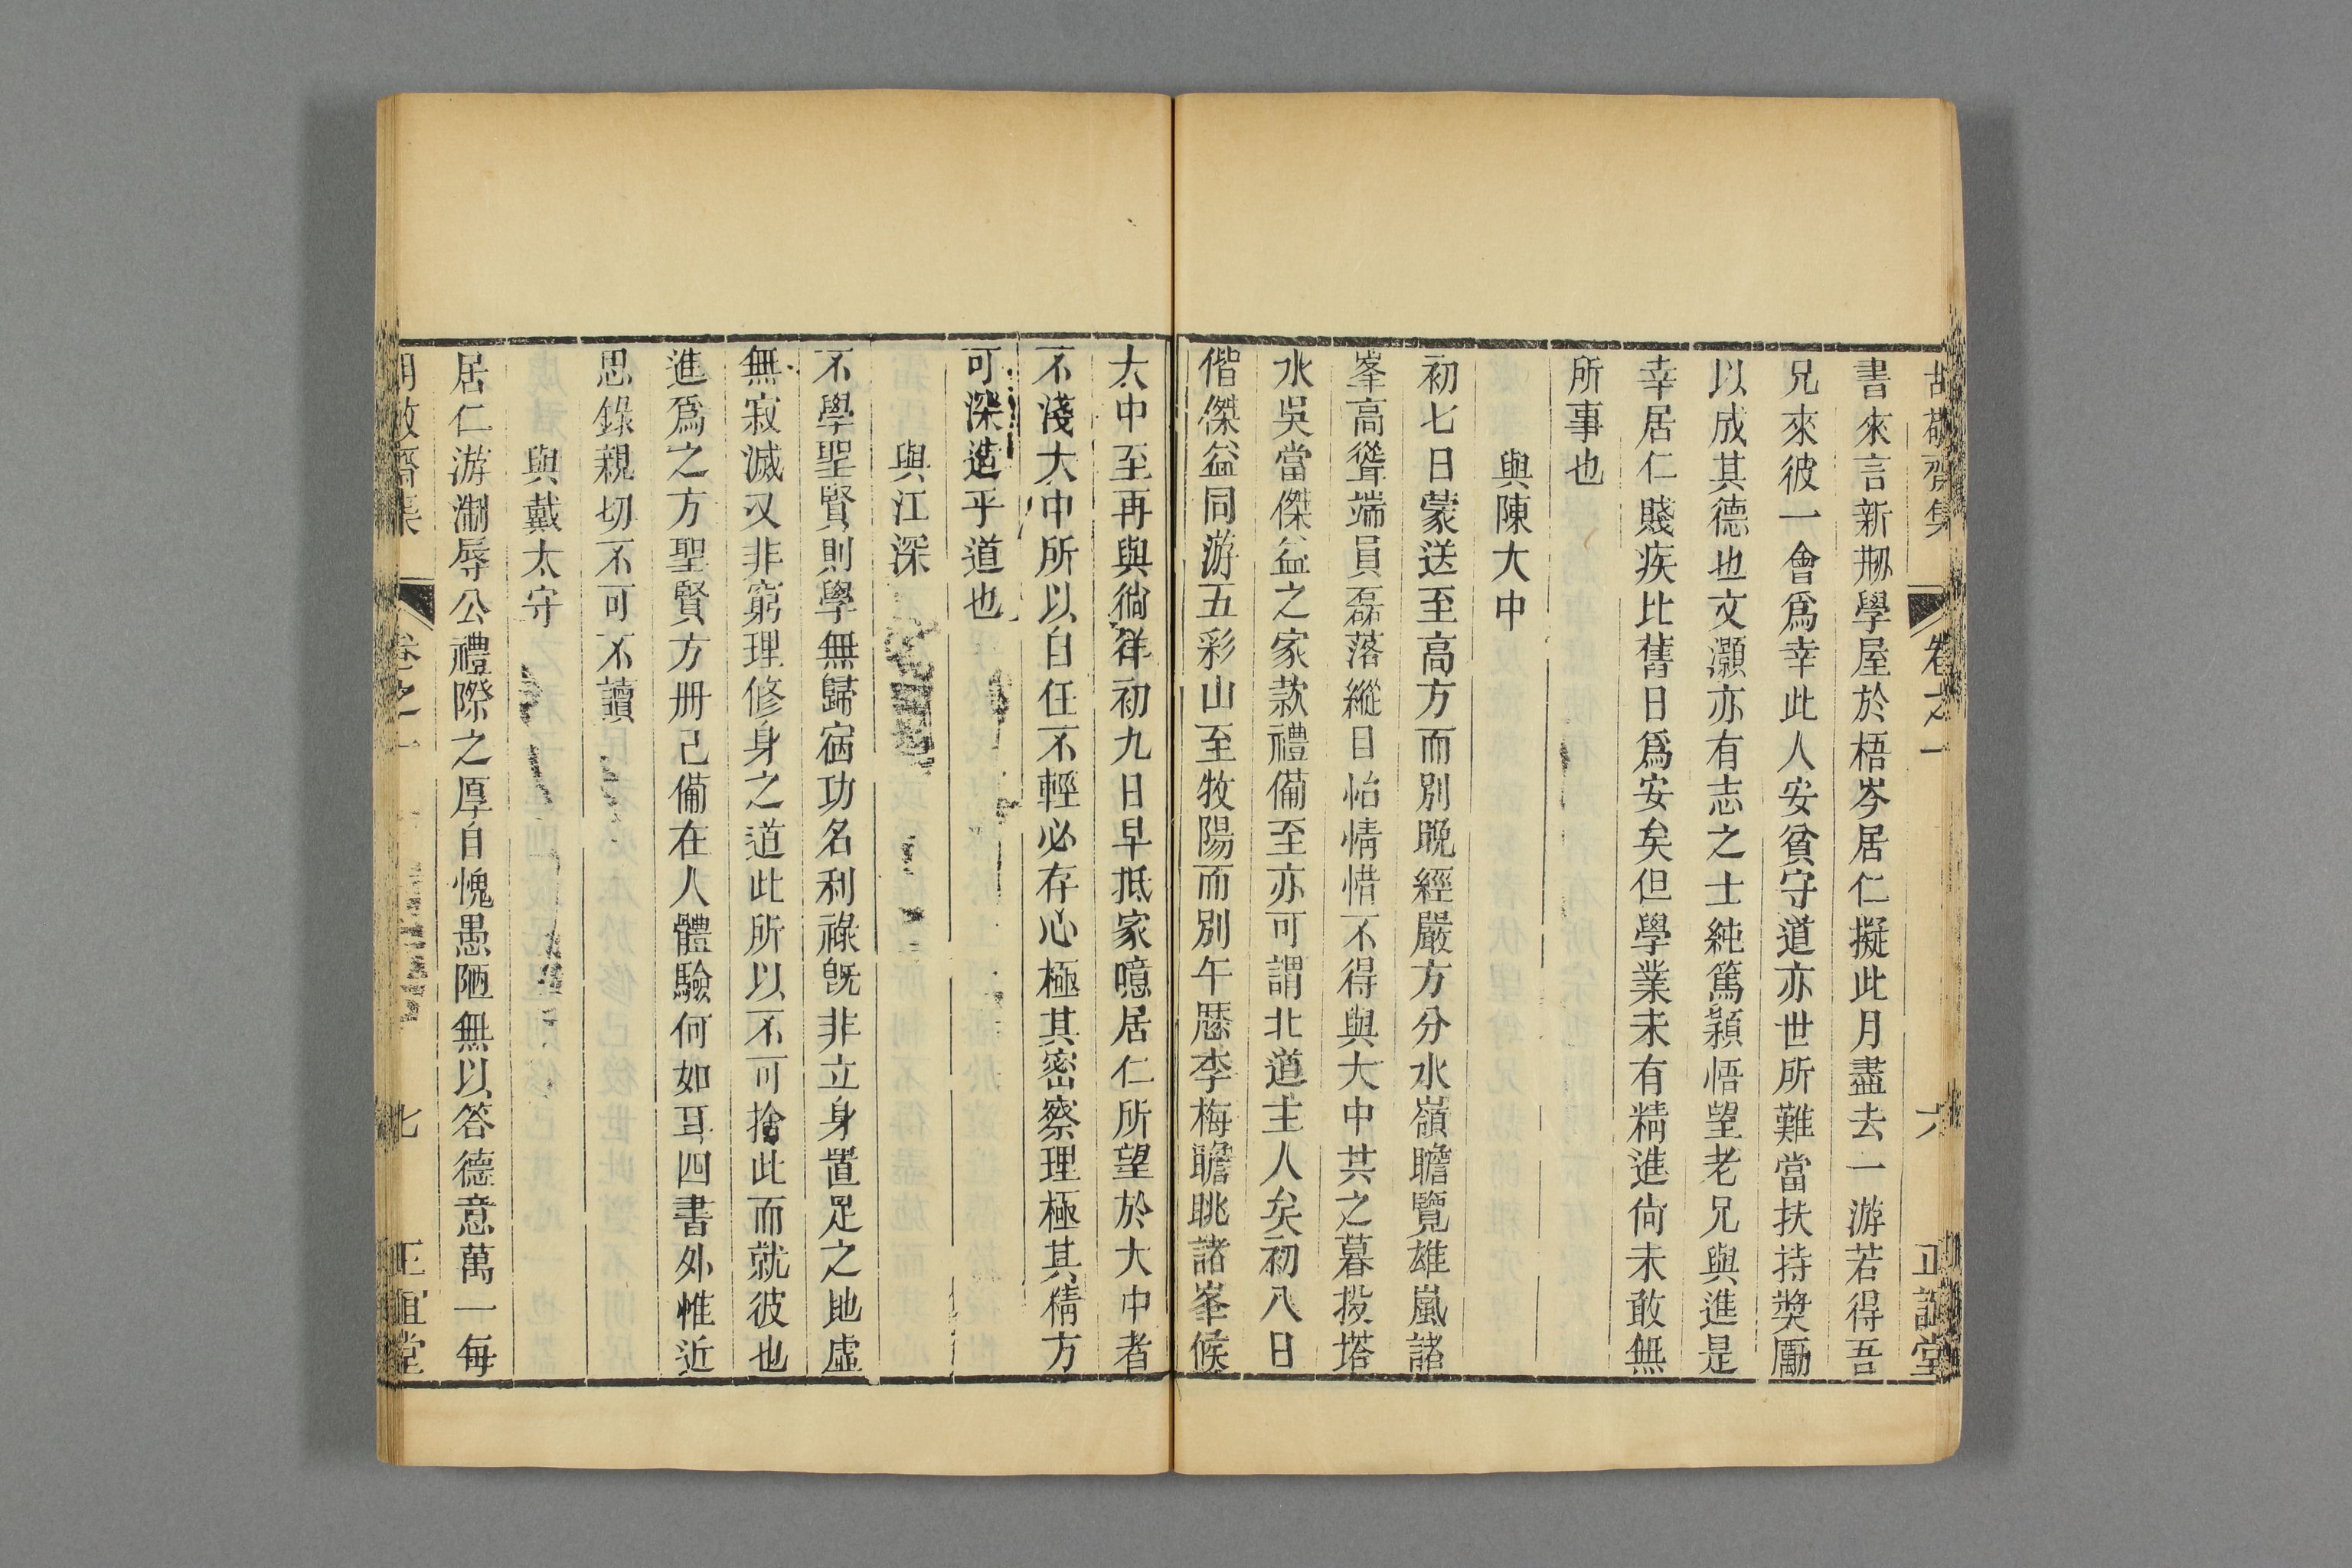 胡敬齋集 卷之一 六 正誼堂
書來言新剏學屋於梧岑居仁擬此月盡去一游若得吾
兄來彼一會爲幸此人安貧守道亦世所難當扶持奬勵
以成其德也文灝亦有志之士純篤穎悟望老兄與進是
幸居仁賤疾比舊日爲安矣但學業未有精進尙未敢無
所事也
與陳大中
初七日蒙送至高方而別晚經嚴方分水嶺瞻覽雄嵐諸
峯高聳端員磊落縱目怡情惜不得與大中共之暮投塔
水吳當傑益之家款禮備至亦可謂北道主人矣初八日
偕傑益同游五彩山至牧陽而別午歷李梅瞻眺諸峯候
大中至再與徜徉初九日早抵家噫居仁所望於大中者
不淺大中所以自任不輕必存心極其密察理極其精方
可深造乎道也
與江深
不學聖賢則學無歸宿功名利祿旣非立身置足之地虛
無寂滅又非窮理修身之道此所以不可捨此而就彼也
進爲之方聖賢方冊已備在人體驗何如耳四書外惟近
思錄親切不可不讀
與戴太守
居仁游溷辱公禮際之厚自愧愚陋無以答德意萬一每
胡敬齋集 卷之一 七 正誼堂